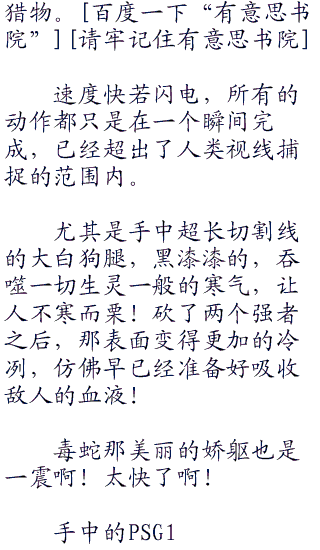 猎物。[百度一下“有意思书
院”][请牢记住有意思书院]
速度快若闪电，所有的
动作都只是在一个瞬间完
成，已经超出了人类视线捕
捉的范围内。
尤其是手中超长切割线
的大白狗腿，黑漆漆的，吞
噬一切生灵一般的寒气，让
人不寒而栗！砍了两个强者
之后，那表面变得更加的冷
冽，仿佛早已经准备好吸收
敌人的血液！
毒蛇那美丽的娇躯也是
一震啊！太快了啊！
手中的PSG1